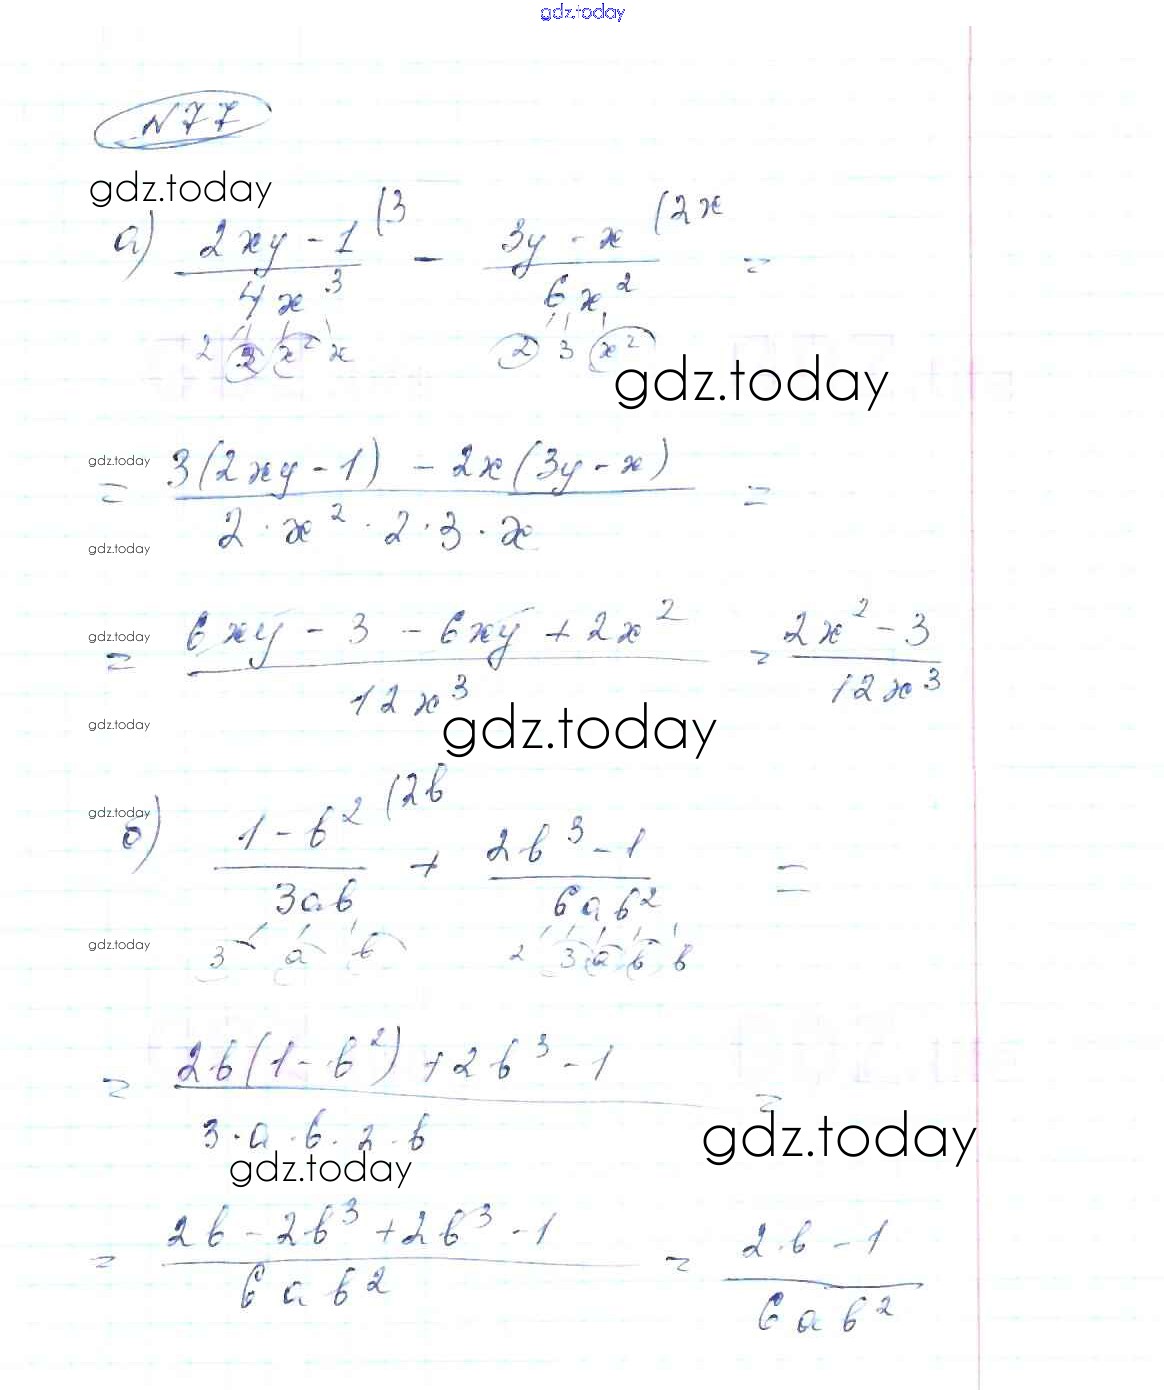 gdz.today
N 77
gdz.today
а) (2xy - 1)/(4x³) (3 - (3y - x)/(6x²) (2x =
2 2 x² x 2 3 x²
gdz.today
gdz.today
= (3(2xy - 1) - 2x(3y - x))/(2 · x² · 2 · 3 · x) =
gdz.today
gdz.today
= (6xy - 3 - 6xy + 2x²)/(12x³) = (2x² - 3)/(12x³)
gdz.today
gdz.today
gdz.today
б) (1 - b²)/(3ab) (2b + (2b³ - 1)/(6ab²) =
gdz.today
3 a b 2 3 a b b
= (2b(1 - b²) + 2b³ - 1)/(3 · a · b · 2 · b) =
gdz.today
gdz.today
= (2b - 2b³ + 2b³ - 1)/(6ab²) = (2b - 1)/(6ab²)